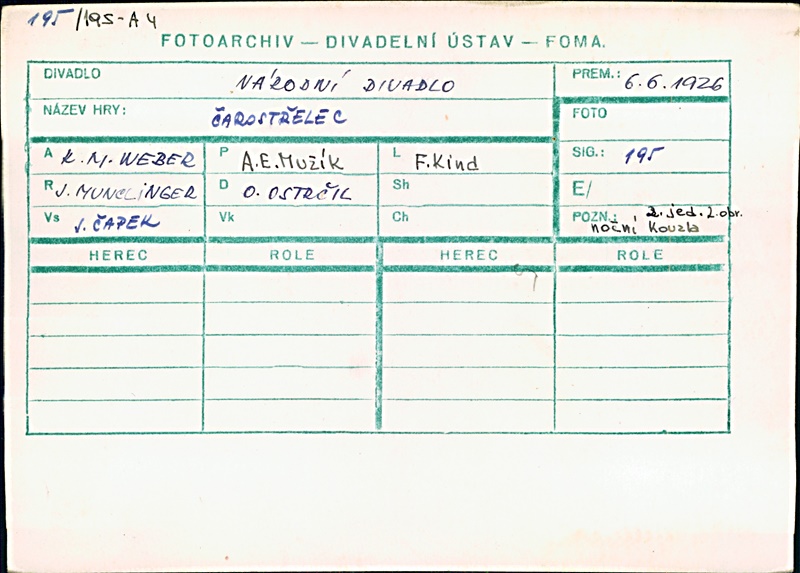 195/195-A4
FOTOARCHIV — DIVADELNÍ ÚSTAV — FOMA.
DIVADLO NÁRODNÍ DIVADLO PREM.: 6.6.1926
NÁZEV HRY: ČAROSTŘELEC FOTO
A K. M. WEBER P A.E.Mužík L F.Kind SIG.: 195
R J. MUNCLINGER D O. OSTRČIL Sh E/
Vs J. ČAPEK Vk Ch POZN.: 2. jed. 2. obr.
noční Kouzla
HEREC ROLE HEREC ROLE